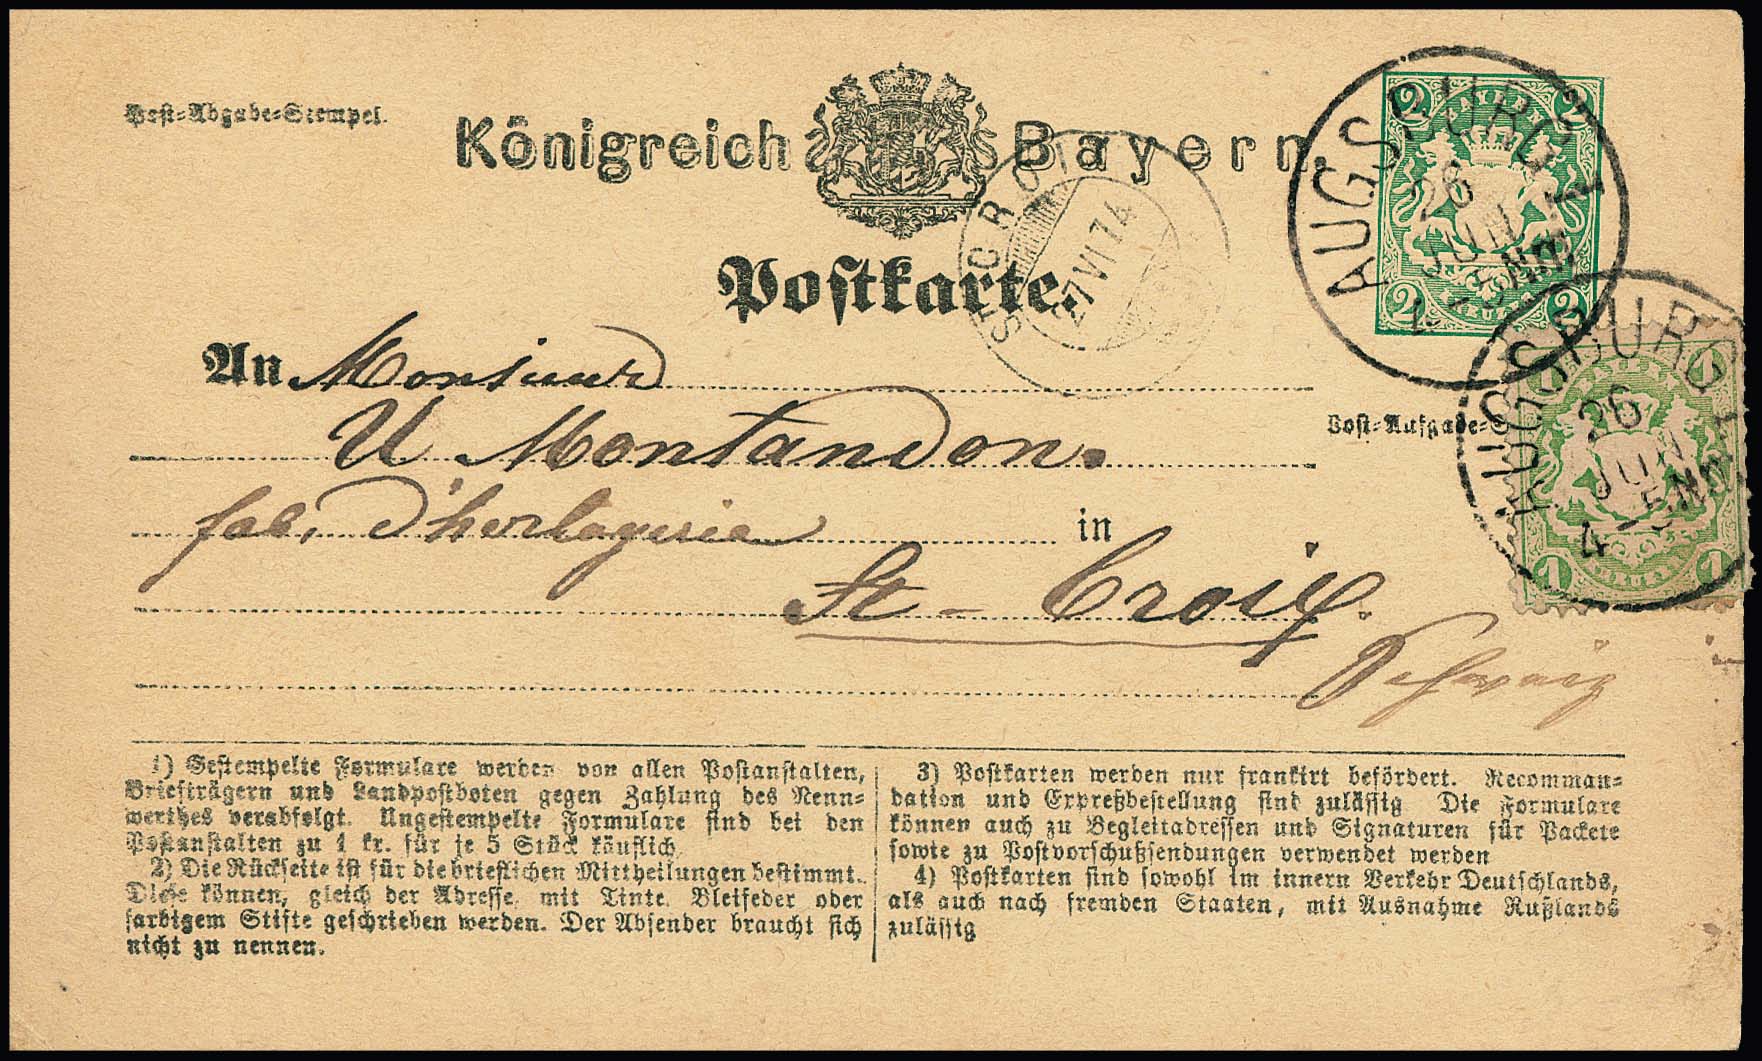 Post=Abgabe=Stempel.
Königreich Bayern.
Postkarte.
2 BAYERN 2
2 KREUZER 2
AUGSBURG I
26
JUN
4-5NM
STE CROIX
27 VI 74
1 BAYERN 1
1 KREUZER 1
AUGSBURG I
26
JUN
4-5NM
An Monsieur
Post=Aufgabe=S
U Montandon.
fab, d'horlogerie in
St-Croix.
Schweiz
1) Gestempelte Formulare werden von allen Postanstalten,
Briefträgern und Landpostboten gegen Zahlung des Nenn=
werthes verabfolgt. Ungestempelte Formulare sind bei den
Postanstalten zu 1 kr. für je 5 Stück käuflich.
2) Die Rückseite ist für die brieflichen Mittheilungen bestimmt.
Diese können, gleich der Adresse, mit Tinte, Bleifeder oder
farbigem Stifte geschrieben werden. Der Absender braucht sich
nicht zu nennen.
3) Postkarten werden nur frankirt befördert. Recomman=
dation und Expreßbestellung sind zulässig Die Formulare
können auch zu Begleitadressen und Signaturen für Packete
sowie zu Postvorschußsendungen verwendet werden
4) Postkarten sind sowohl im innern Verkehr Deutschlands,
als auch nach fremden Staaten, mit Ausnahme Rußlands
zulässig